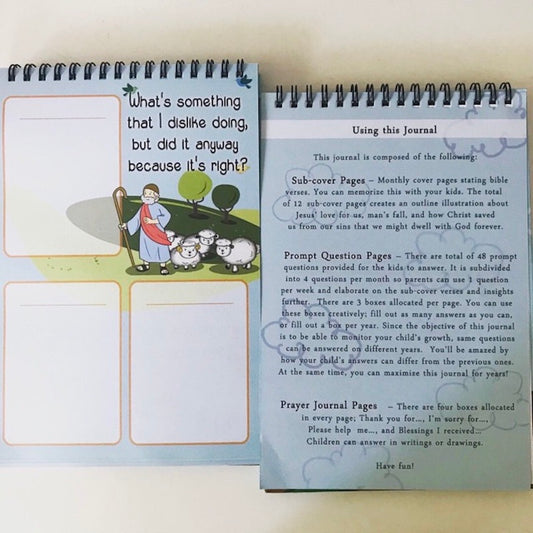 What's something
that I dislike doing,
but did it anyway
because it's right?
Using this Journal
This journal is composed of the following:
Sub-cover Pages – Monthly cover pages stating bible
verses. You can memorize this with your kids. The total
of 12 sub-cover pages creates an outline illustration about
Jesus' love for us, man's fall, and how Christ saved
us from our sins that we might dwell with God forever.
Prompt Question Pages – There are total of 48 prompt
questions provided for the kids to answer. It is subdivided
into 4 questions per month so parents can use 1 question
per week and elaborate on the sub-cover verses and insights
further. There are 3 boxes allocated per page. You can use
these boxes creatively; fill out as many answers as you can,
or fill out a box per year. Since the objective of this journal
is to be able to monitor your child's growth, same questions
can be answered on different years. You'll be amazed by
how your child's answers can differ from the previous ones.
At the same time, you can maximize this journal for years!
Prayer Journal Pages – There are four boxes allocated
in every page; Thank you for..., I'm sorry for...,
Please help me..., and Blessings I received...
Children can answer in writings or drawings.
Have fun!